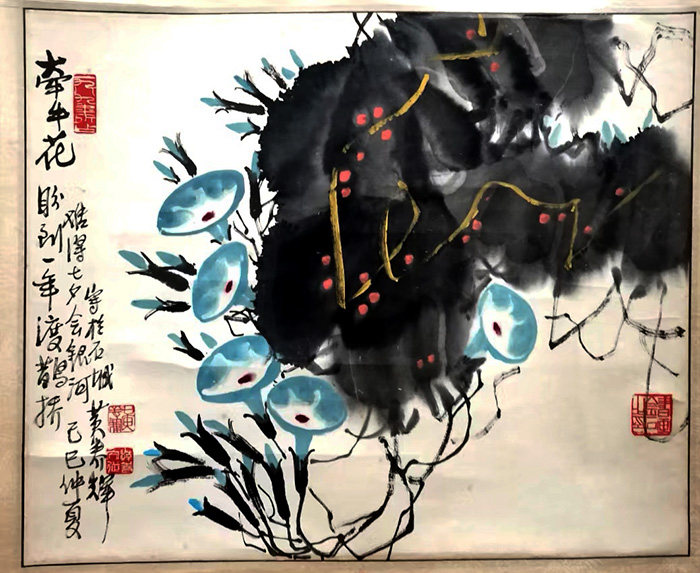 牵牛花
盼到一年渡鵲桥
难得七夕会銀河
己巳仲夏
写於石城 黄养輝